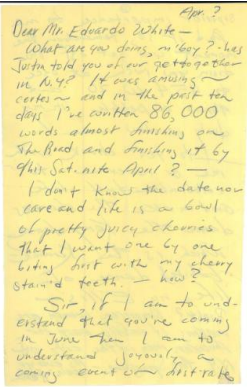 Apr. ?
Dear Mr. Eduardo White —
What are you doing, m'boy? - has
Justin told you of our get together
in N.Y.? It was amusing ~
certes ~ and in the past ten
days I've written 86,000
words almost finishing On
The Road and finishing it by
this Sat. nite April ? —
I don't know the date nor
care and life is a bowl
of pretty juicy cherries
that I want one by one
biting first with my cherry
stain'd teeth. — how?
Sir, if I am to und-
erstand that you're coming
in June then I am to
understand joyously a
coming event of first rate